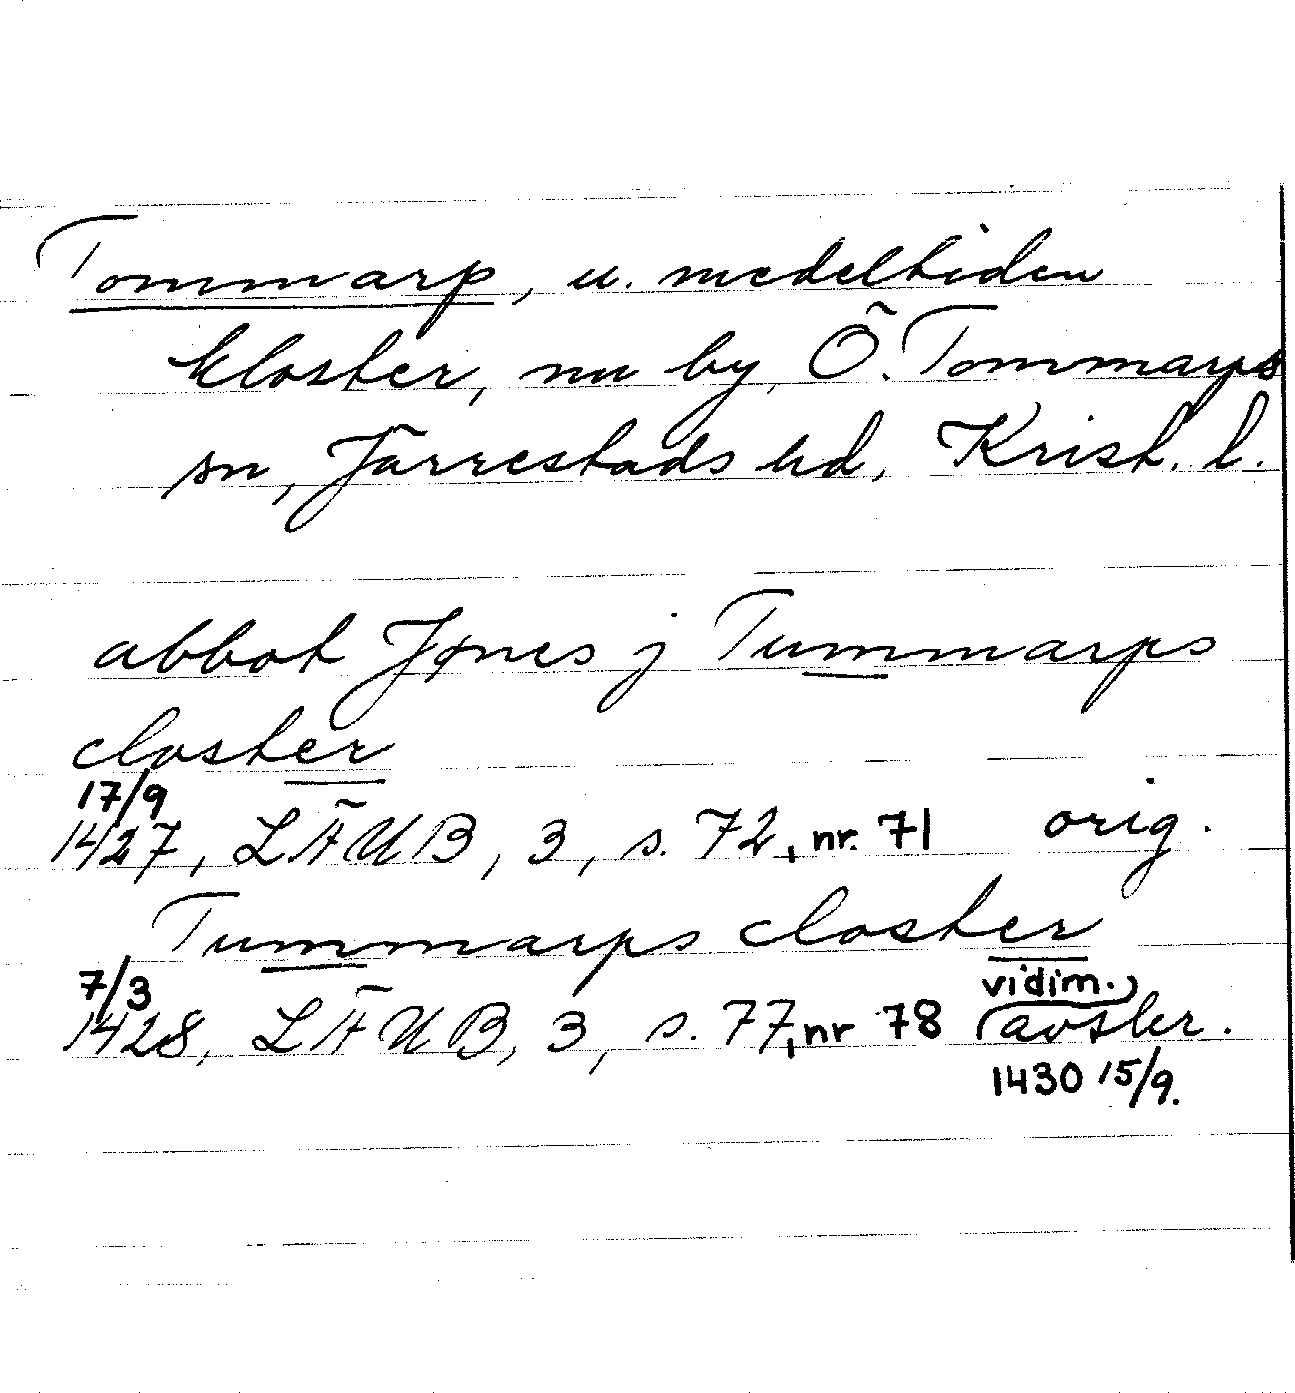 Tommarp, u. medeltiden
kloster, nu by, Ö. Tommarps
sn, Järrestads hd, Krist. l.
abbot Jønes j Tummarps
closter
17/9
1427, LÄUB, 3, s. 72, nr. 71 orig.
Tummarps closter
7/3
1428, LÄUB, 3, s. 77, nr 78 (vidim.) avskr.
1430 15/9.